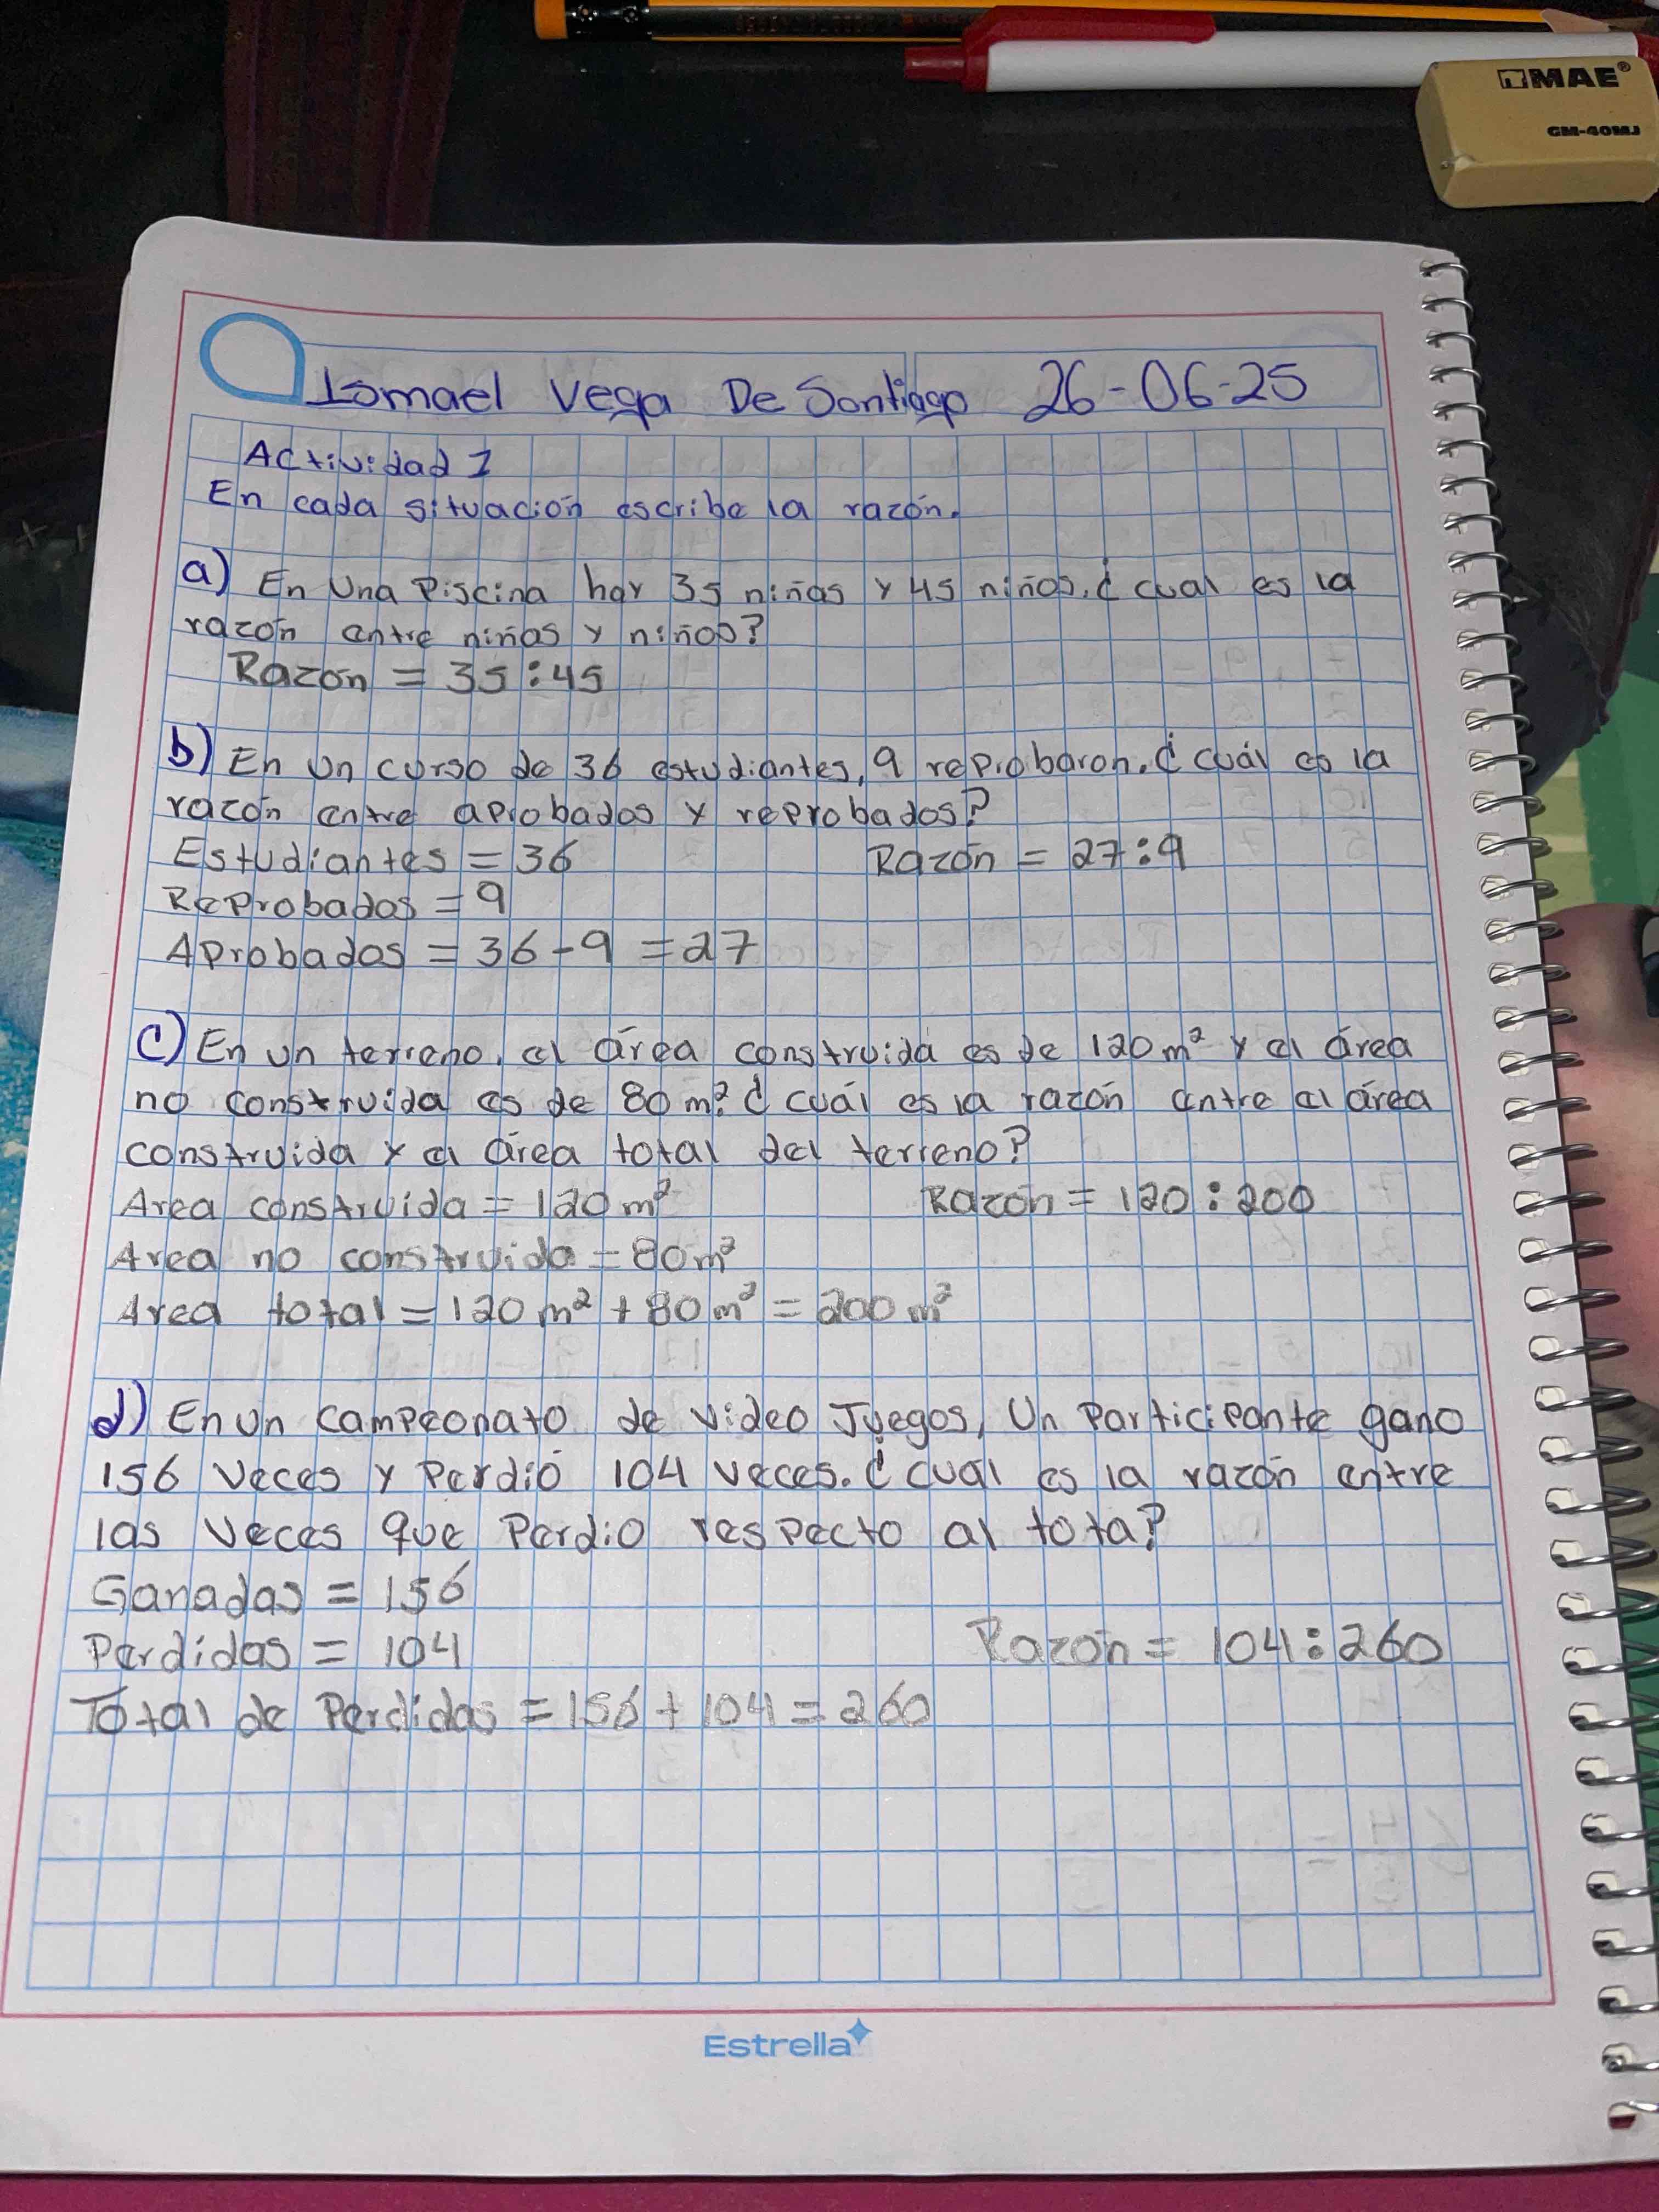 MAE®
GM-40MJ
Ismael Vega De Santiago 26-06-25
Actividad 1
En cada situación escribe la razón.
a) En Una Piscina hay 35 niñas y 45 niños. ¿cual es la
razón entre niñas y niños?
Razón = 35:45
b) En Un curso de 36 estudiantes, 9 reprobaron. ¿cuál es la
razón entre aprobados y reprobados?
Estudiantes = 36 Razón = 27:9
Reprobados = 9
Aprobados = 36-9 = 27
c) En un terreno, el área construida es de 120m² y el área
no construida es de 80m². ¿cuál es la razón entre el área
construida y el área total del terreno?
Area construida = 120m² Razón = 120:200
Area no construida = 80m²
Area total = 120m² + 80m² = 200m²
d) En un campeonato de video Juegos, Un Participante gano
156 veces y Perdió 104 veces. ¿cual es la razón entre
las veces que Perdio respecto al tota?
Ganadas = 156
Perdidas = 104 Razón = 104:260
Total de Perdidas = 156 + 104 = 260
Estrella